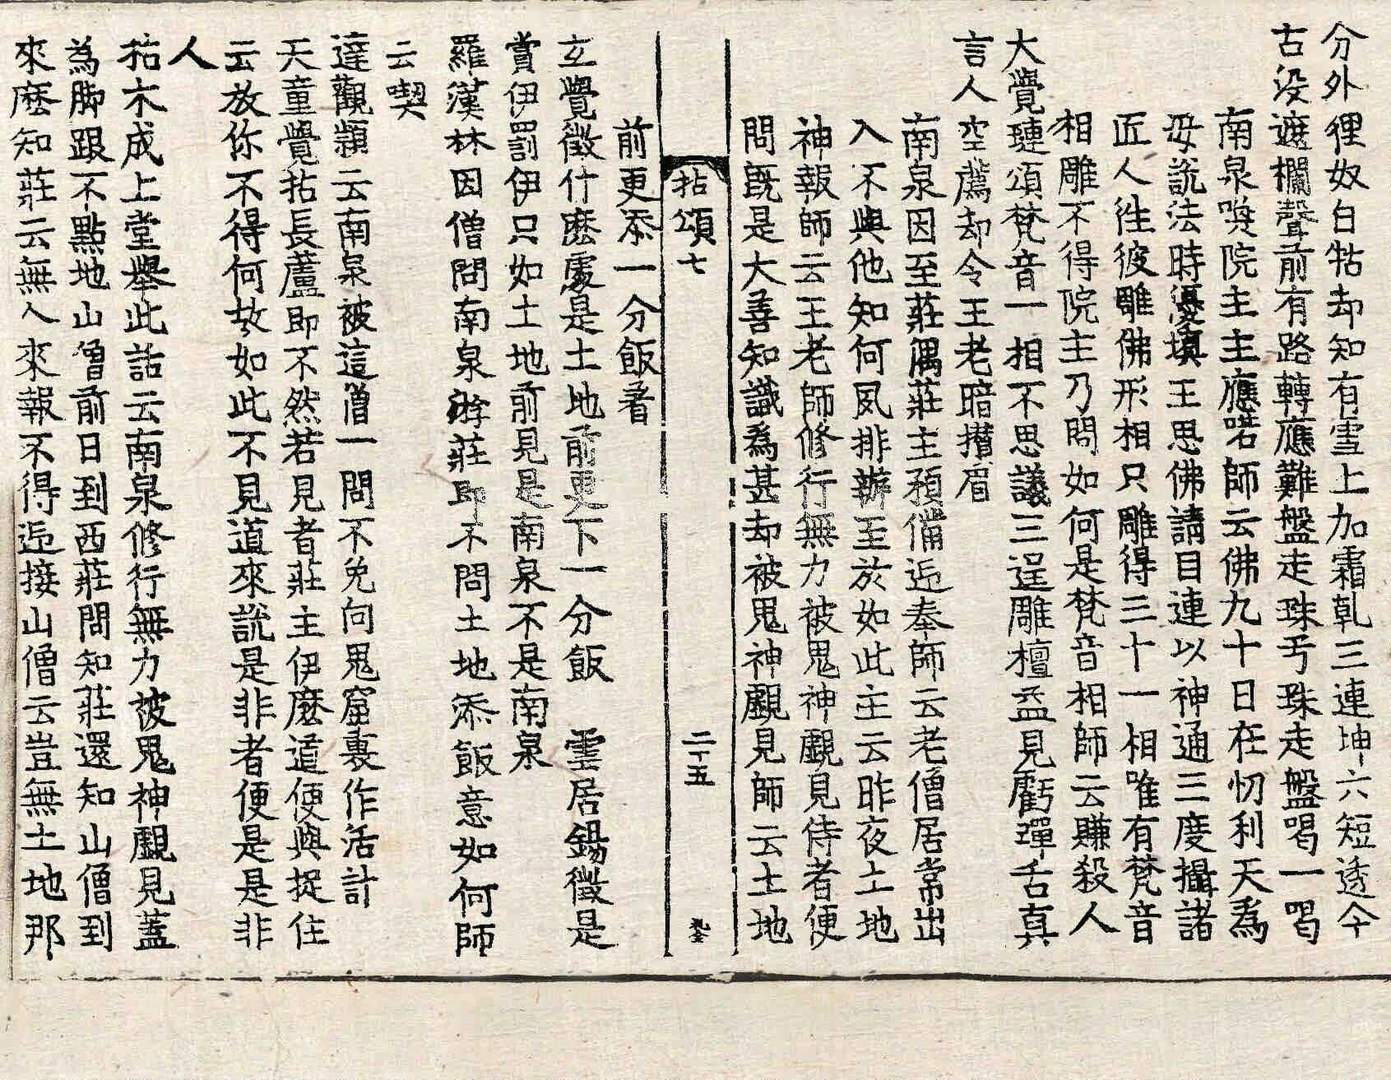 分外狸奴白牯却知有雪上加霜乹三連坤六短透今
古没遮欄聲前有路轉應難盤走珠兮珠走盤喝一喝
南泉喚院主主應喏師云佛九十日在忉利天爲
母說法時優塡王思佛請目連以神通三度攝諸
匠人徃彼雕佛形相只雕得三十一相唯有梵音
相雕不得院主乃問如何是梵音相師云賺殺人
大覺璉頌梵音一相不思議三逞雕檀益見虧彈舌真
言人空薦却令王老暗攢眉
南泉因至莊偶莊主預偹迎奉師云老僧居常出
入不與他知何夙排辦至於如此主云昨夜土地
神報師云王老師修行無力被鬼神覷見侍者便
問旣是大善知識爲甚却被鬼神覷見師云土地
拈頌七 二十五
前更添一分飯着
玄覺徵什麽處是土地前更下一分飯 雲居錫徵是
賞伊罰伊只如土地前見是南泉不是南泉
羅漢林因僧問南泉遊莊即不問土地添飯意如何師
云喫
達觀頴云南泉被這僧一問不免向鬼窟裏作活計
天童覺拈長蘆即不然若見者莊主伊麽道便與捉住
云放你不得何故如此不見道來說是非者便是是非
人
枯木成上堂舉此話云南泉修行無力被鬼神覷見蓋
為脚跟不點地山僧前日到西莊問知莊還知山僧到
來麽知莊云無人來報不得迎接山僧云豈無土地那